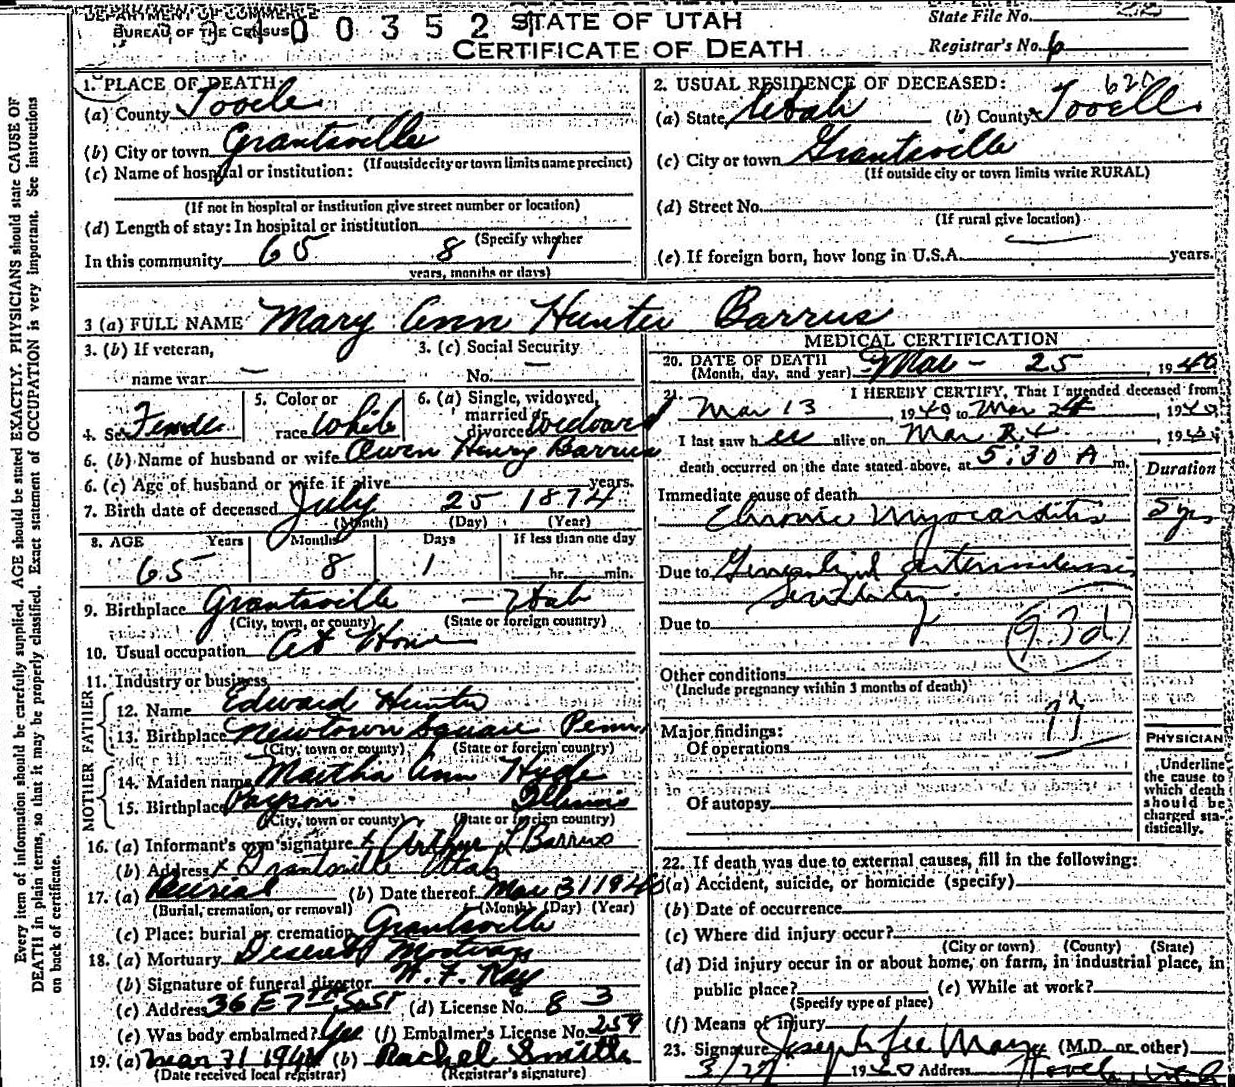 DEPARTMENT OF COMMERCE
BUREAU OF THE CENSUS
0 0 3 5 2
STATE OF UTAH
CERTIFICATE OF DEATH
State File No.
Registrar's No. 6
1. PLACE OF DEATH
(a) County Tooele
(b) City or town Grantsville
(If outside city or town limits name precinct)
(c) Name of hospital or institution:
(If not in hospital or institution give street number or location)
(d) Length of stay: In hospital or institution
(Specify whether
In this community 65 8 1
years, months or days)
2. USUAL RESIDENCE OF DECEASED:
(a) State Utah (b) County Tooele
(c) City or town Grantsville
(If outside city or town limits write RURAL)
(d) Street No.
(If rural give location)
(e) If foreign born, how long in U.S.A. years.
3 (a) FULL NAME Mary Ann Hunter Barrus
3. (b) If veteran,
name war —
3. (c) Social Security
No. —
4. Sex Female
5. Color or
race White
6. (a) Single, widowed,
married or
divorced
6. (b) Name of husband or wife Owen Henry Barrus
6. (c) Age of husband or wife if alive years.
7. Birth date of deceased July 25 1874
(Month) (Day) (Year)
8. AGE Years Months Days If less than one day
65 8 1 hr. min.
9. Birthplace Grantsville — Utah
(City, town, or county) (State or foreign country)
10. Usual occupation At Home
11. Industry or business
FATHER
12. Name Edward Hunter
13. Birthplace Newtown Square Penn
(City, town or county) (State or foreign country)
MOTHER
14. Maiden name Martha Ann Hyde
15. Birthplace Payson Illinois
(City, town or county) (State or foreign country)
16. (a) Informant's own signature x Arthur L Barrus
(b) Address x Grantsville Utah
17. (a) Burial (b) Date thereof Mar 31 1940
(Burial, cremation, or removal) (Month) (Day) (Year)
(c) Place: burial or cremation Grantsville
18. (a) Mortuary Deseret Mortuary
(b) Signature of funeral director
(c) Address 36 E 7th So St (d) License No. 8 3
(e) Was body embalmed? Yes (f) Embalmer's License No. 259
19. (a) Mar 31 1940 (b) Rachel Smith
(Date received local registrar) (Registrar's signature)
MEDICAL CERTIFICATION
20. DATE OF DEATH
(Month, day, and year) Mar - 25, 1940
21. I HEREBY CERTIFY, That I attended deceased from
Mar 13 1940 to Mar 24, 1940
I last saw her alive on Mar 24, 1940;
death occurred on the date stated above, at 5:30 A m.
Duration
Immediate cause of death
Chronic Myocarditis 5 yrs
Due to Generalized Arteriosclerosis
Senility
Due to
93d
Other conditions
(Include pregnancy within 3 months of death)
Major findings:
Of operations
Of autopsy
PHYSICIAN
Underline
the cause to
which death
should be
charged sta-
tistically.
22. If death was due to external causes, fill in the following:
(a) Accident, suicide, or homicide (specify)
(b) Date of occurrence
(c) Where did injury occur?
(City or town) (County) (State)
(d) Did injury occur in or about home, on farm, in industrial place, in
public place? (e) While at work?
(Specify type of place)
(f) Means of injury
23. Signature Joseph Lee (M.D. or other)
3/27 1940 Address
Every item of information should be carefully supplied. AGE should be stated EXACTLY. PHYSICIANS should state CAUSE OF
DEATH in plain terms, so that it may be properly classified. Exact statement of OCCUPATION is very important. See instructions
on back of certificate.